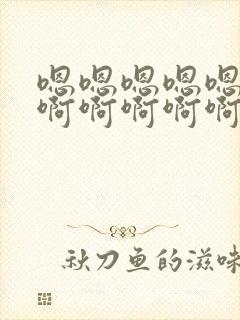 嗯嗯嗯嗯嗯
啊啊啊啊啊
秋刀鱼的滋味